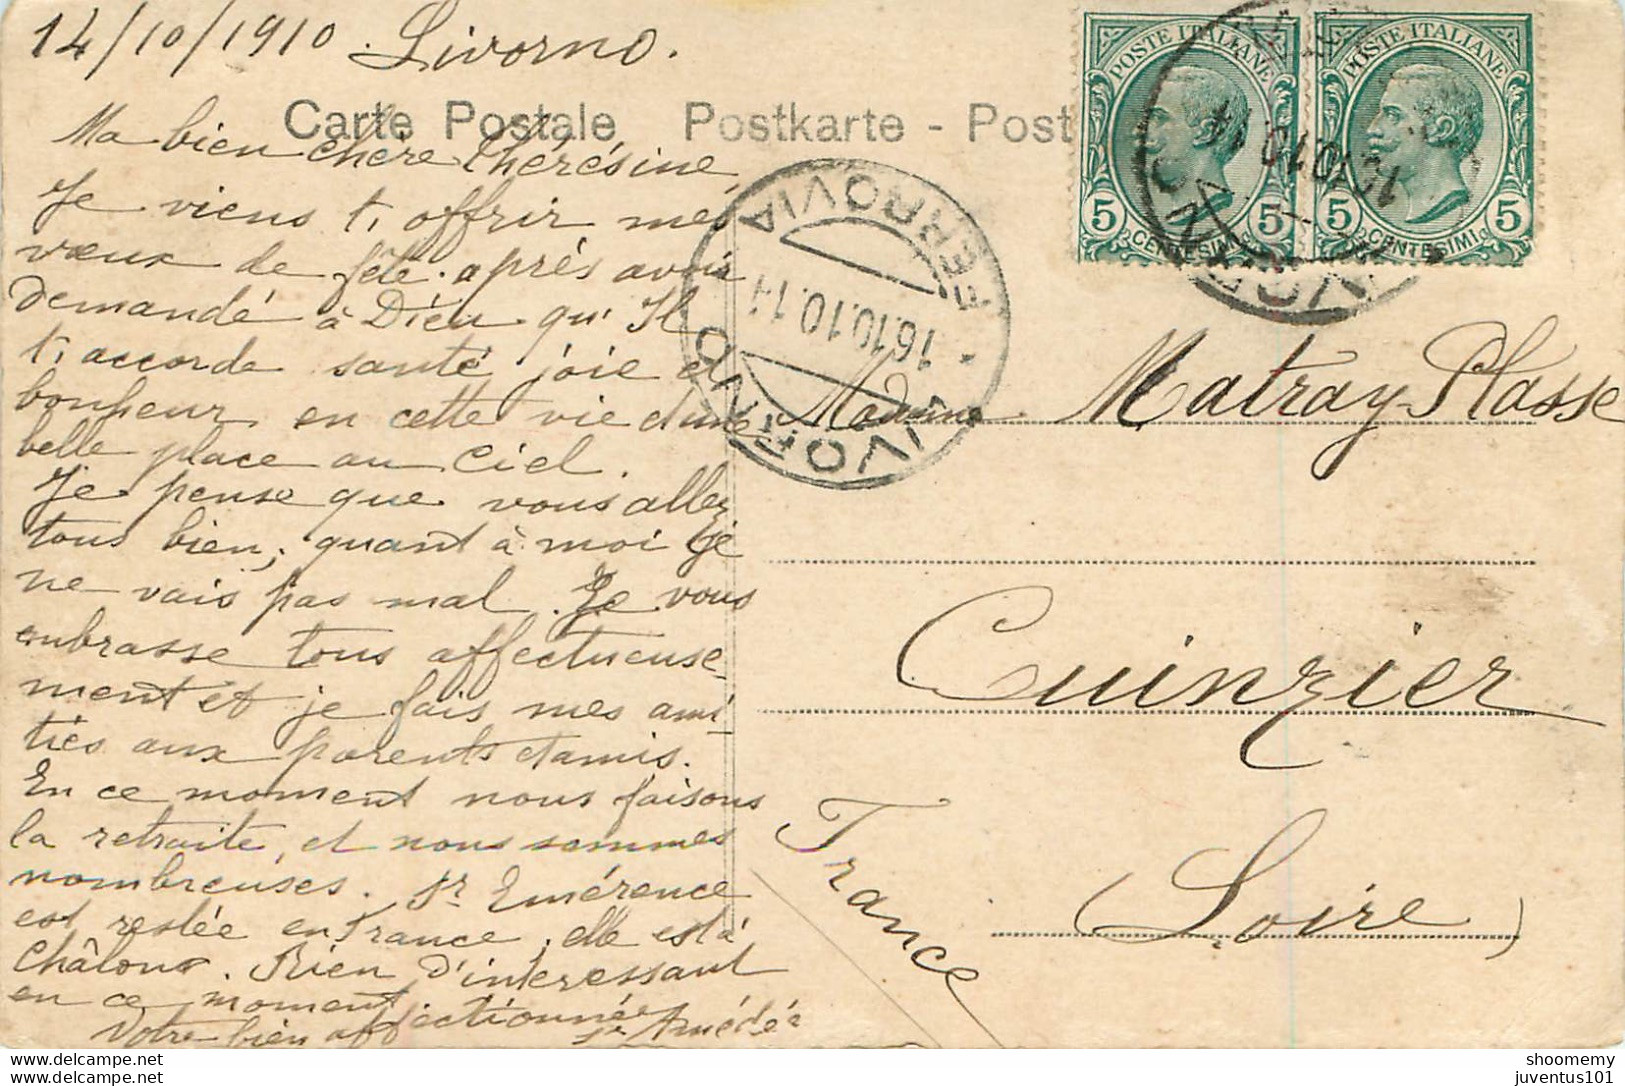 14/10/1910. Livorno.
Carte Postale Postkarte - Post
POSTE ITALIANE
5 CENTESIMI 5
POSTE ITALIANE
5 CENTESIMI 5
LIVORNO FERROVIA
16.10.10.14
16.10.10.14
Ma bien chère Thérésine,
Je viens t'offrir mes
vœux de fête. après avoir
demandé à Dieu qu'Il
t'accorde santé joie et
bonheur en cette vie et une
belle place au Ciel.
Je pense que vous allez
tous bien; quant à moi je
ne vais pas mal. Je vous
embrasse tous affectueuse-
ment et je fais mes ami-
tiés aux parents et amis.
En ce moment nous faisons
la retraite, et nous sommes
nombreuses. Sr Emérence
est restée en France, elle est à
Châlons. Rien d'interessant
en ce moment
Votre bien affectionnée
Sr Amédée
Madame Matray-Plasse
Cuinzier
(Loire)
France
shoomemy
juventus101